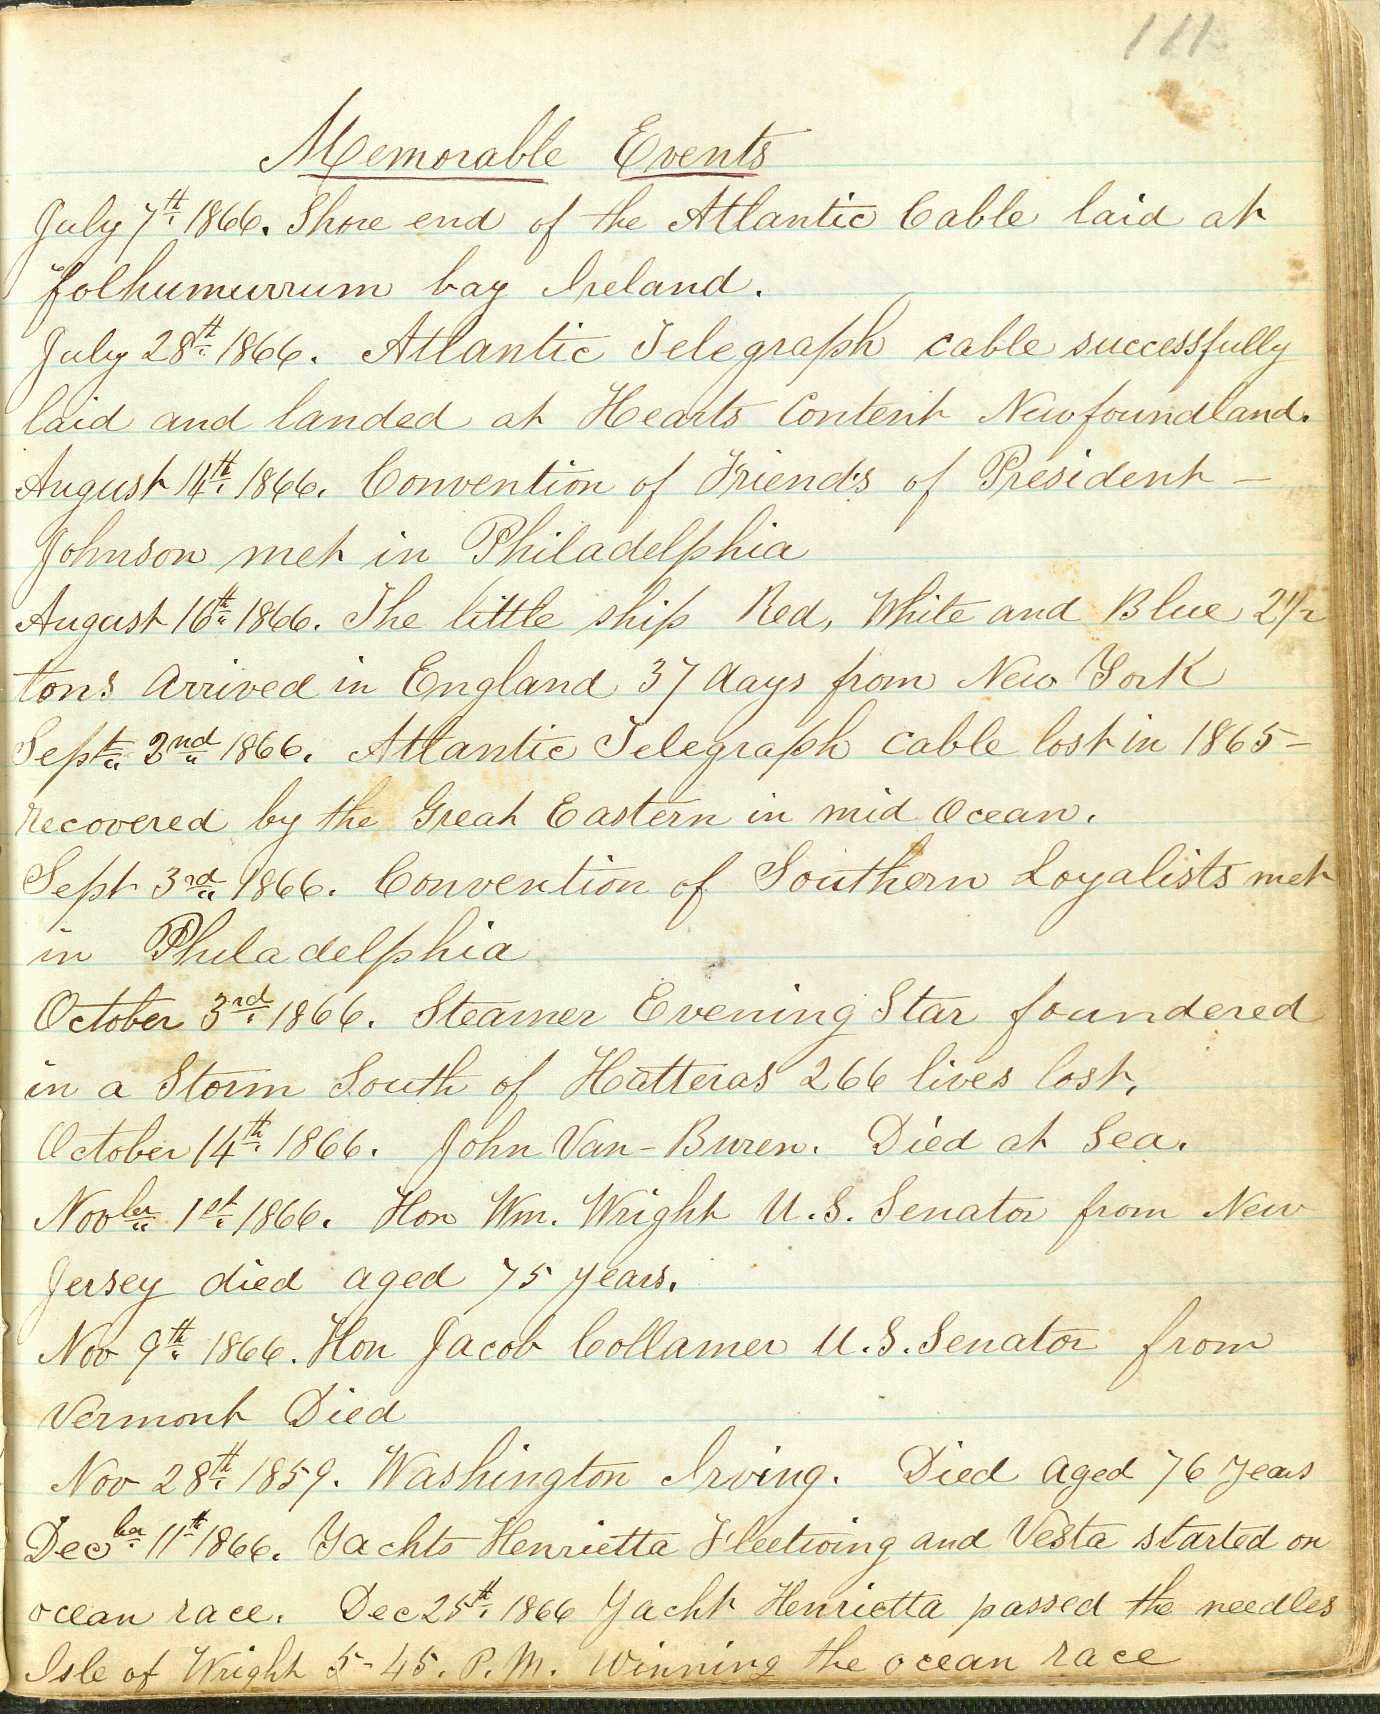 111
Memorable Events
July 7th 1866. Shore end of the Atlantic Cable laid at
folhumurrum bay Ireland.
July 28th 1866. Atlantic Telegraph cable successfully
laid and landed at Hearts Content Newfoundland.
August 14th 1866. Convention of Friends of President –
Johnson met in Philadelphia
August 16th 1866. The little ship Red, White and Blue 2 1/2
tons arrived in England 37 days from New York
Sept. 2nd 1866. Atlantic Telegraph cable lost in 1865 –
recovered by the Great Eastern in mid Ocean.
Sept 3rd 1866. Convention of Southern Loyalists met
in Philadelphia
October 3rd 1866. Steamer Evening Star foundered
in a Storm South of Hatteras 266 lives lost,
October 14th 1866. John Van-Buren. Died at Sea.
Novber 1st 1866. Hon Wm. Wright U.S. Senator from New
Jersey died aged 75 years.
Nov 9th 1866. Hon Jacob Collamer U.S. Senator from
Vermont Died
Nov 28th 1859. Washington Irving. Died aged 76 years
Decber 11th 1866. Yachts Henrietta Fleetwing and Vesta started on
ocean race. Dec 25th 1866 Yacht Henrietta passed the needles
Isle of Wright 5-45. P.M. winning the ocean race